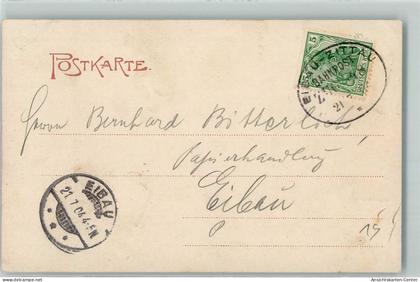 POSTKARTE.
5
ZITTAU
BAHNPOST
21
Herrn Bernhard Bitterlich
Papierhandlung
Eibau
EIBAU
21.7.04.4-5N
Ansichtskarten-Center.com